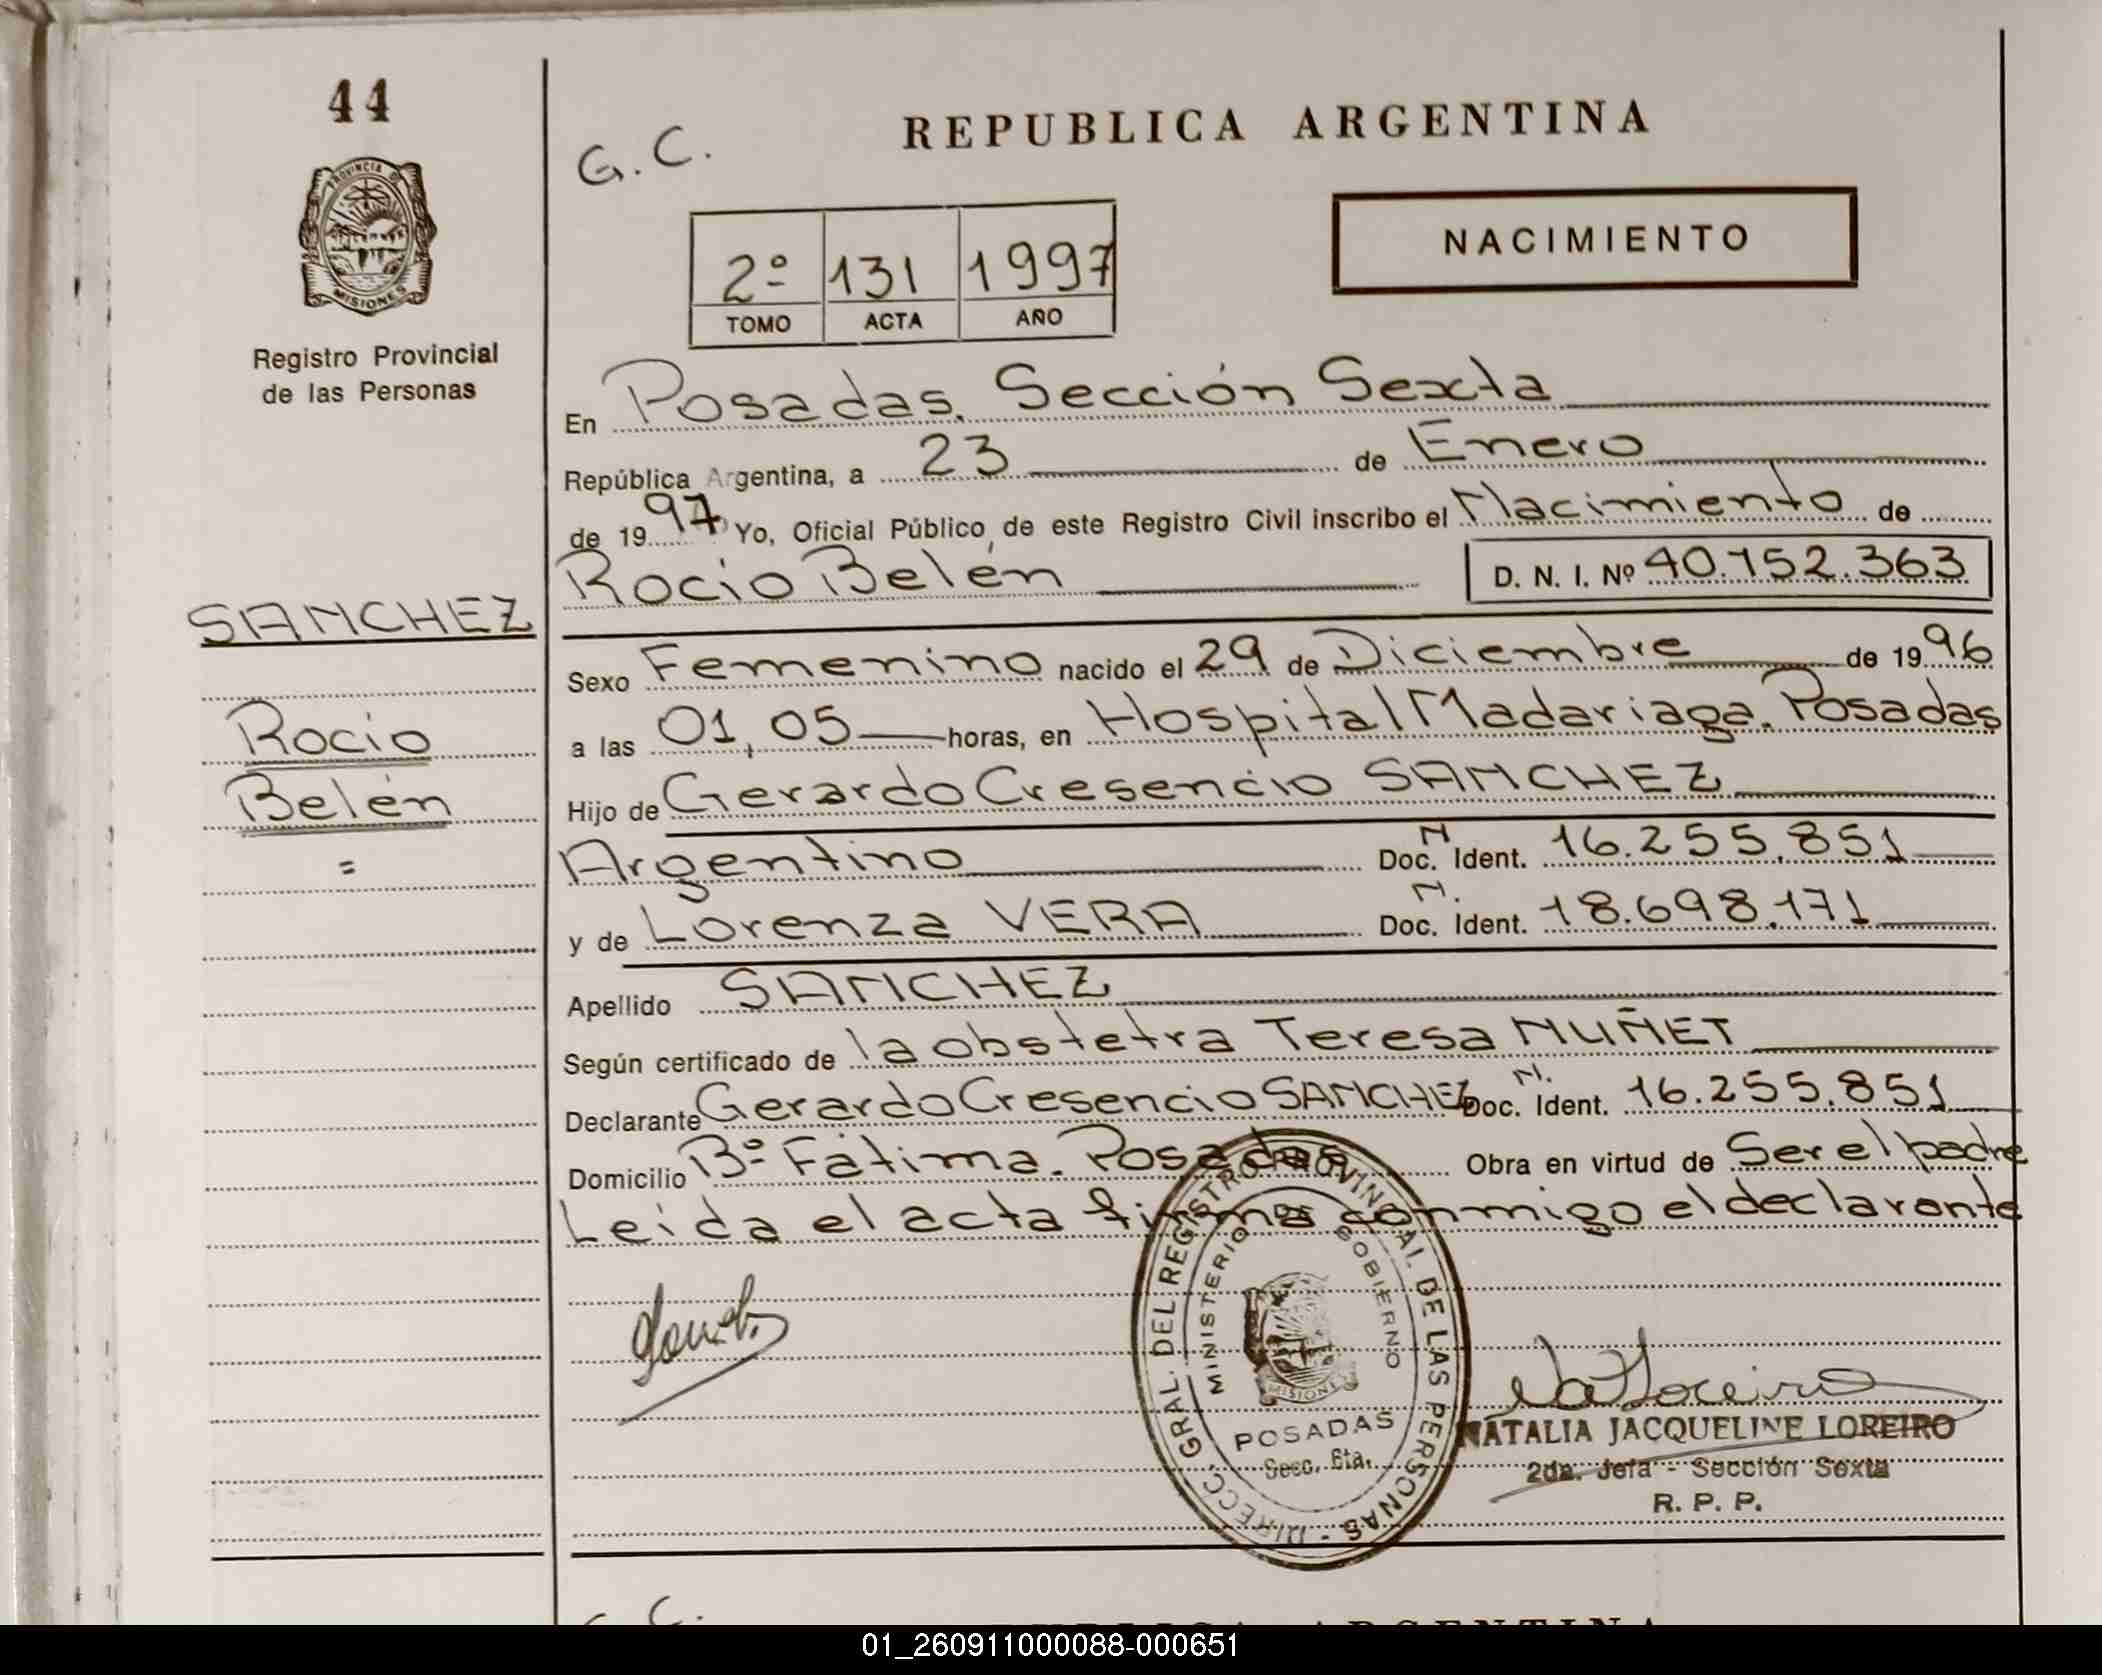 44
PROVINCIA DE
MISIONES
Registro Provincial
de las Personas
SANCHEZ
Rocio
Belén
=
G. C.
REPUBLICA ARGENTINA
2º 131 1997
TOMO ACTA AÑO
NACIMIENTO
En Posadas. Sección Sexta
República Argentina, a 23 de Enero
de 1997 Yo, Oficial Público, de este Registro Civil inscribo el Nacimiento de
Rocio Belén D. N. I. Nº 40.152.363
Sexo Femenino nacido el 29 de Diciembre de 1996
a las 01,05 horas, en Hospital Madariaga. Posadas
Hijo de Gerardo Cresencio SANCHEZ
Argentino N Doc. Ident. 16.255.851
y de Lorenza VERA N. Doc. Ident. 18.698.171
Apellido SANCHEZ
Según certificado de la obstetra Teresa NUÑET
Declarante Gerardo Cresencio SANCHEZ N. Doc. Ident. 16.255.851
Domicilio Bº Fátima. Posadas Obra en virtud de Ser el padre
Leida el acta firma conmigo el declarante
DIRECC. GRAL. DEL REGISTRO PROVINCIAL DE LAS PERSONAS
MINISTERIO DE GOBIERNO
MISIONES
POSADAS
Secc. 6ta.
NATALIA JACQUELINE LOREIRO
2da. Jefa - Sección Sexta
R. P. P.
C.
ARGENTINA
01_260911000088-000651